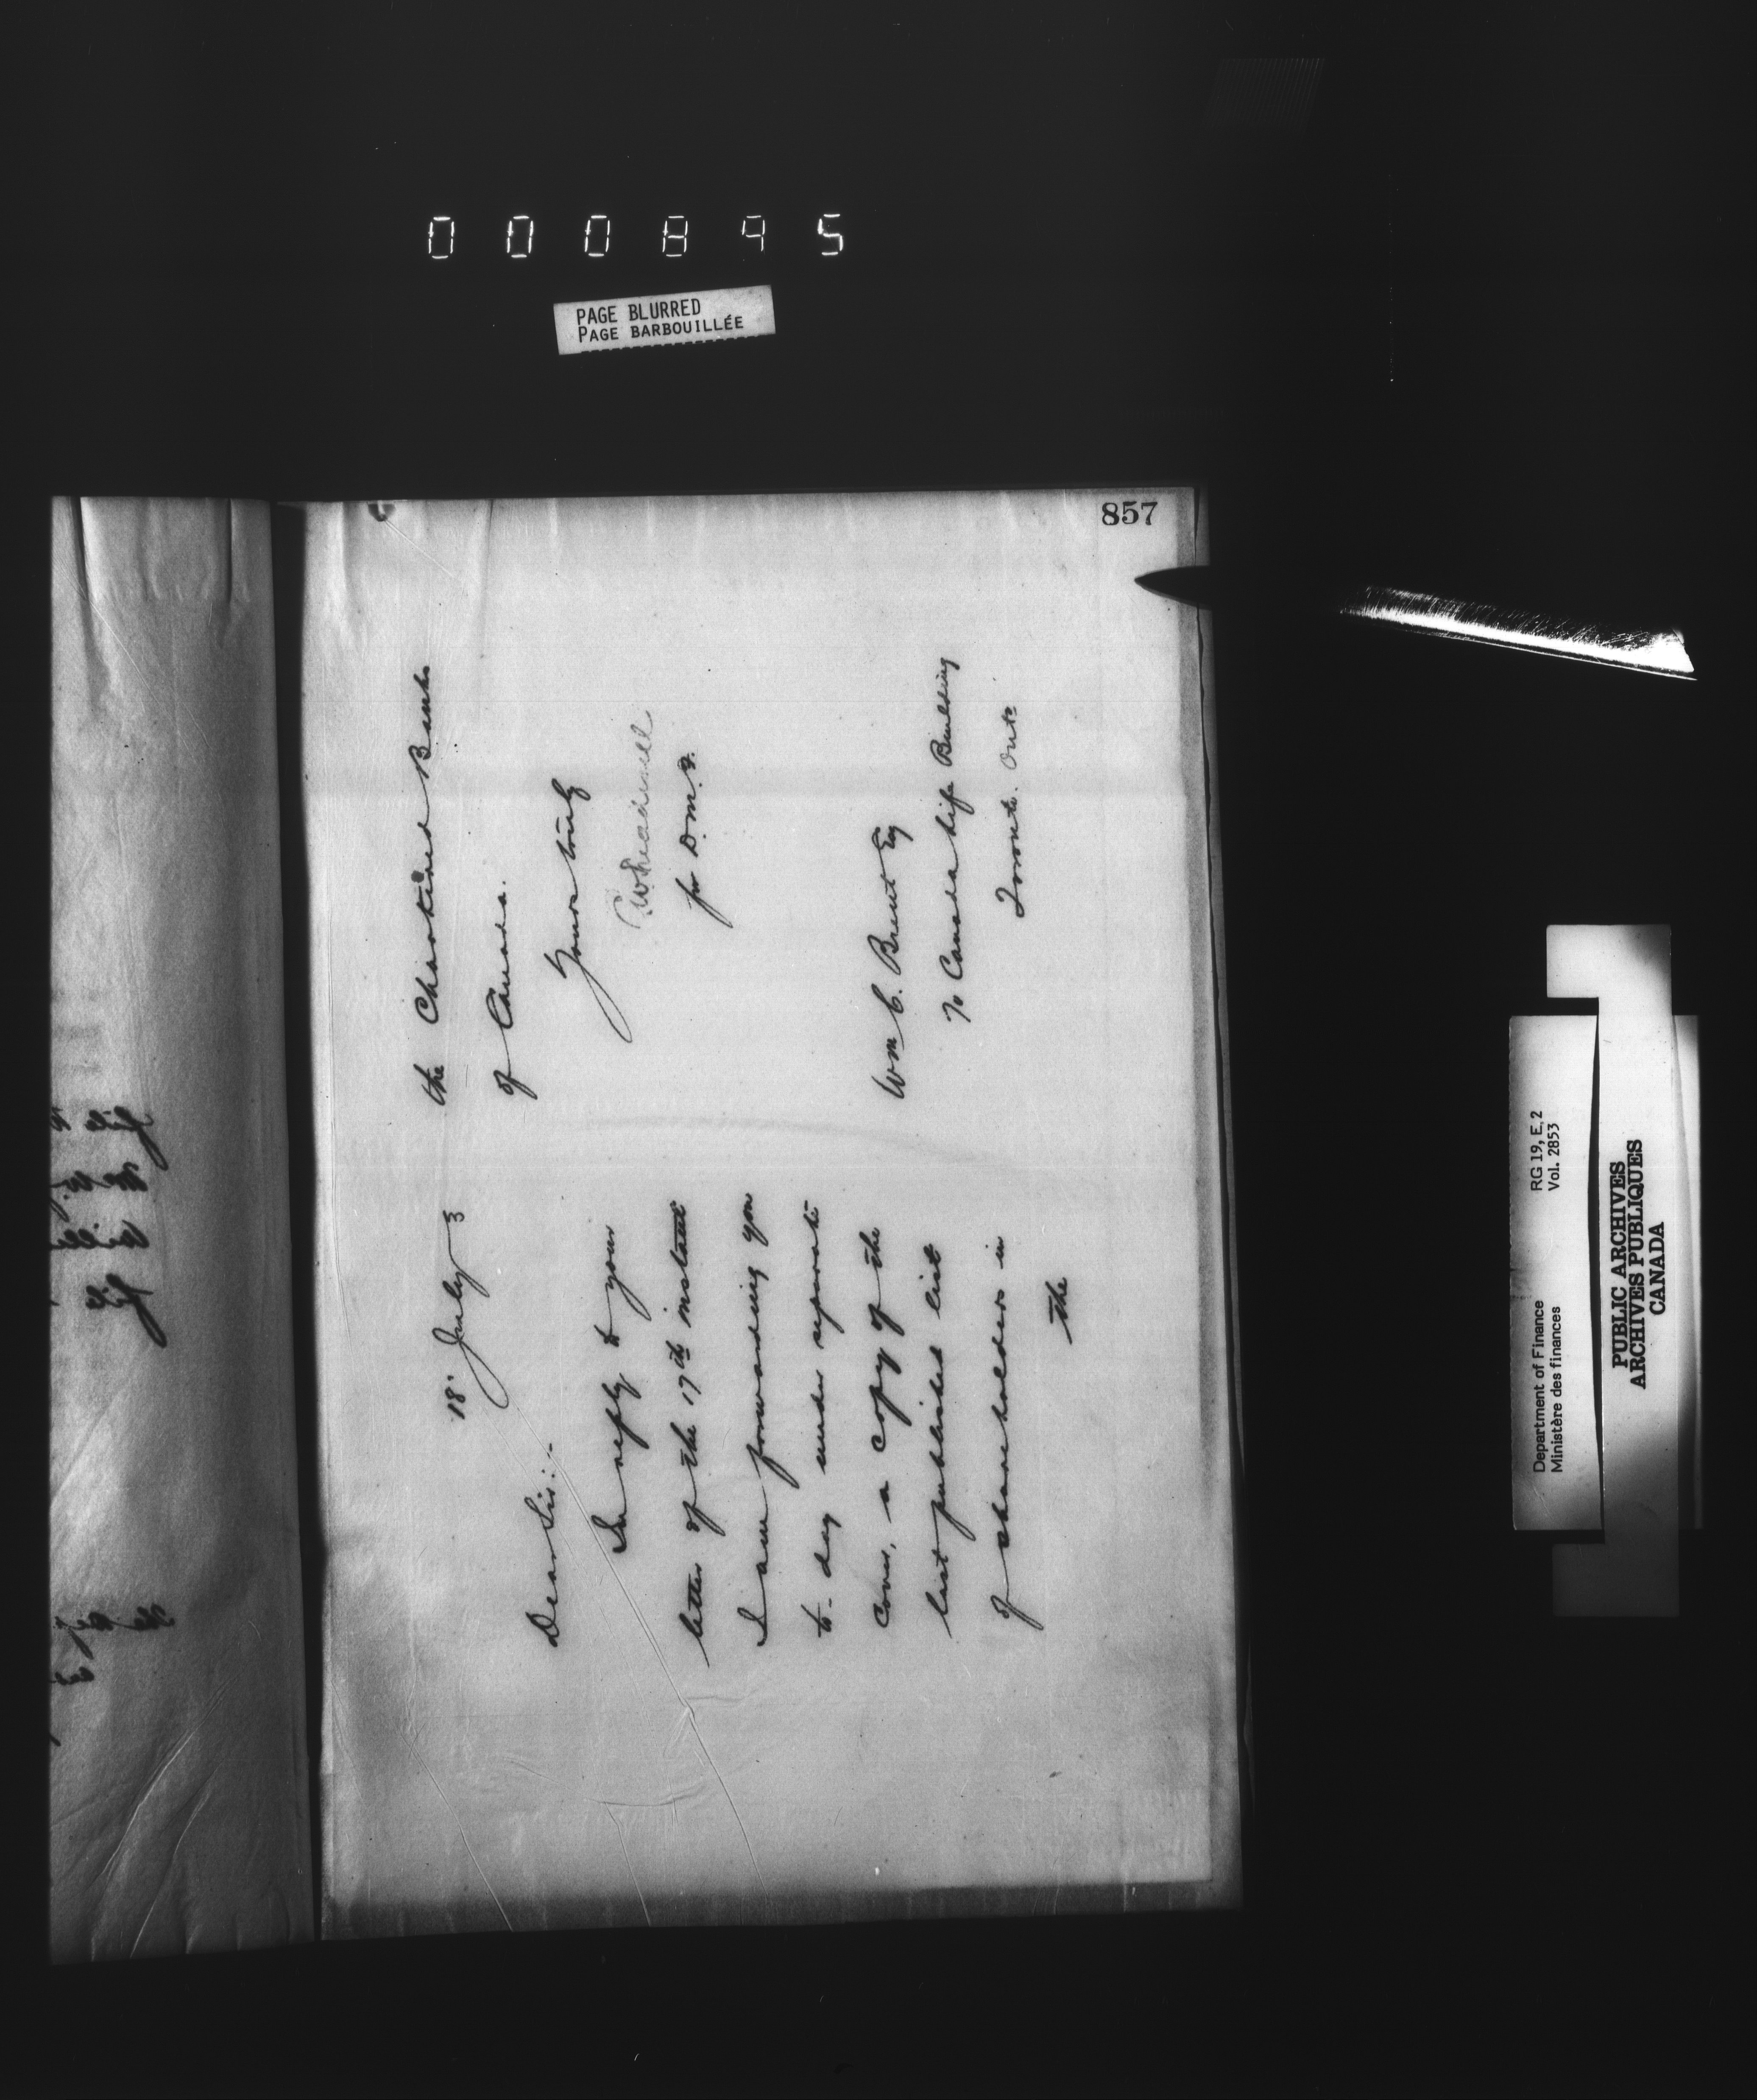 000895
PAGE BLURRED
PAGE BARBOUILLÉE
857
18. July 3
Dear Sir:-
In reply to your
letter of the 17th instant
I am forwarding you
to-day under separate
cover, a copy of the
last published list
of shareholders in
the
the Chartered Banks
of Canada.
Yours truly
for D.M.F.
Wm C. Brent Esq
Canada Life Building
Toronto. Onto
Department of Finance RG 19, E.2
Ministère des finances Vol. 2853
PUBLIC ARCHIVES
ARCHIVES PUBLIQUES
CANADA